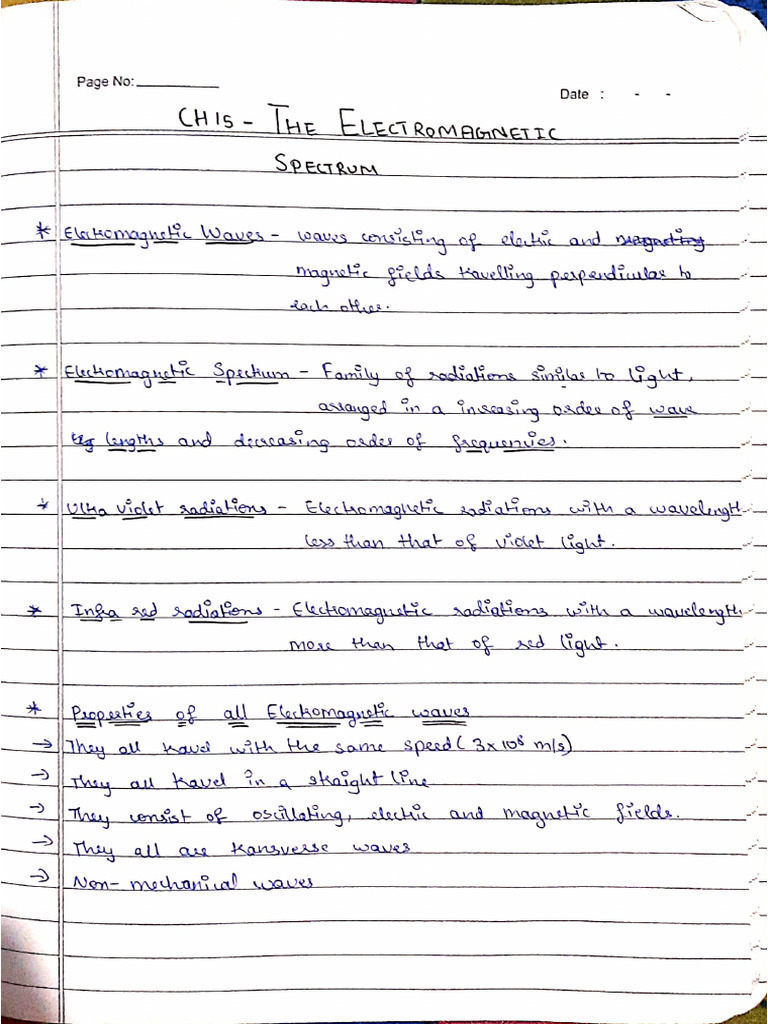 Page No:
Date : - -
CH15 - THE ELECTROMAGNETIC
SPECTRUM
* Electromagnetic Waves - waves consisting of electric and magneting
magnetic fields travelling perpendicular to
each other.
* Electromagnetic Spectrum - Family of radiations similar to light,
arranged in a increasing order of wave
lengths and decreasing order of frequencies.
* Ultra Violet radiations - Electromagnetic radiations with a wavelength
less than that of violet light.
* Infra red radiations - Electromagnetic radiations with a wavelength
more than that of red light.
* Properties of all Electromagnetic waves
→ They all travel with the same speed (3×10⁸ m/s)
→ They all travel in a straight line
→ They consist of oscillating, electric and magnetic fields.
→ They all are transverse waves
→ Non-mechanical waves